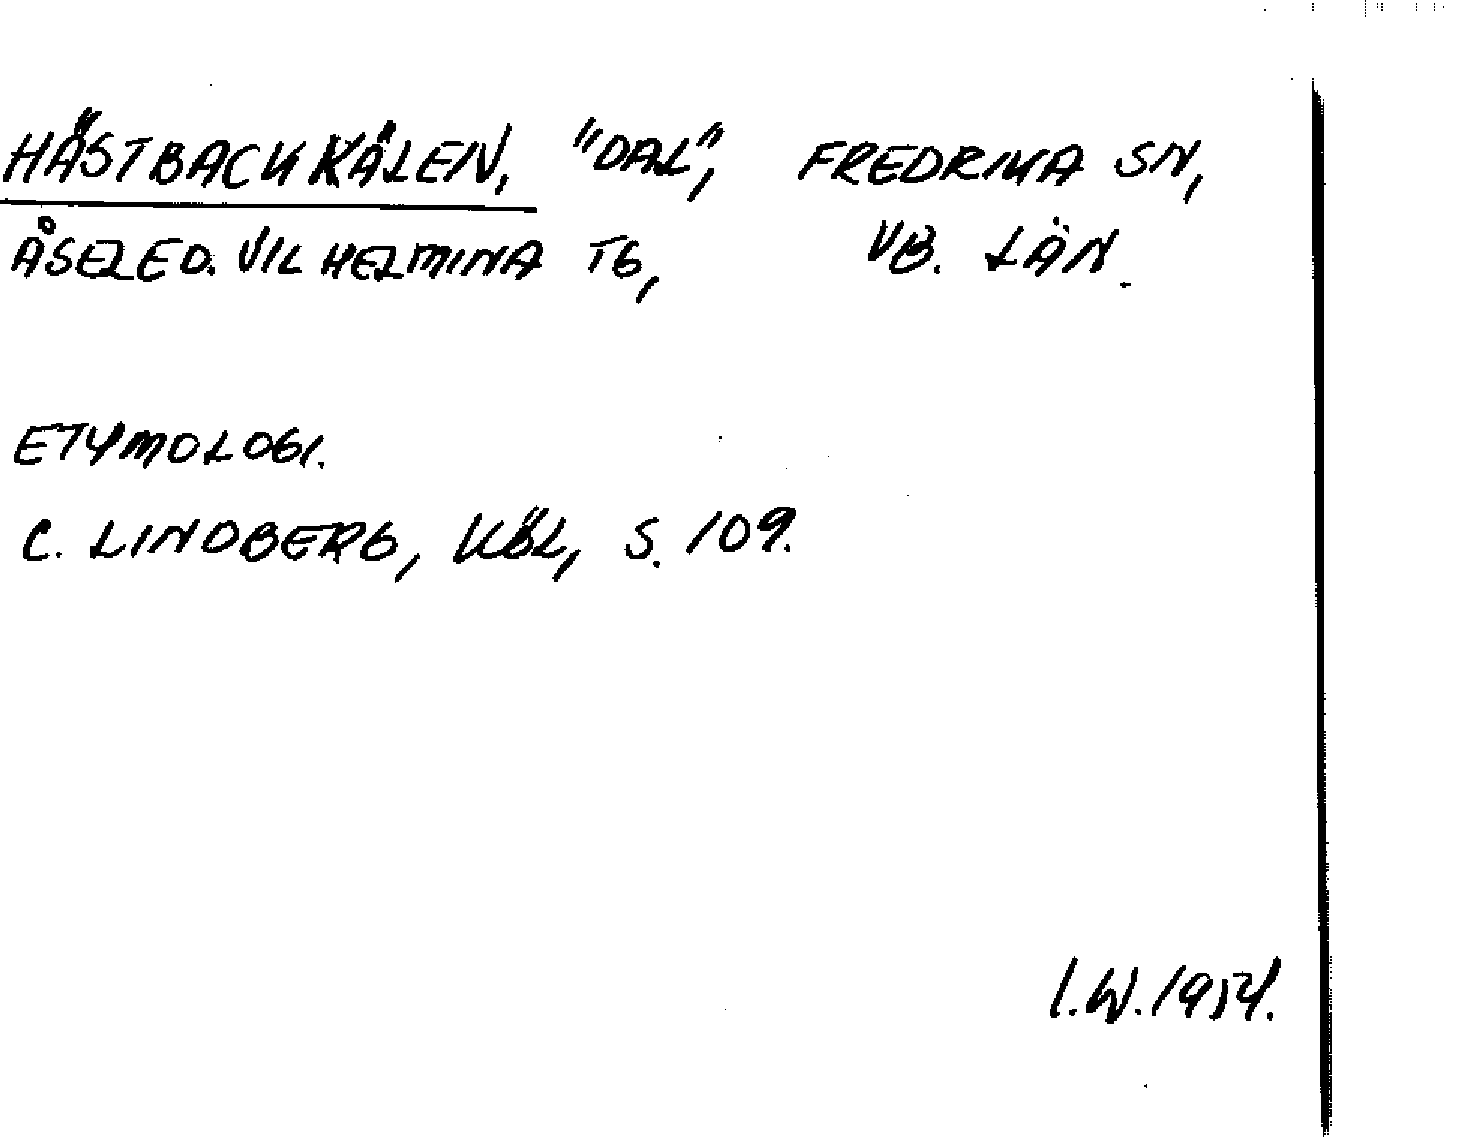 HÄSTBACKKÄLEN, "DAL", FREDRIKA SN,
ÅSELE O. VILHELMINA TG, VB. LÄN.
ETYMOLOGI.
C. LINDBERG, KÖL, S. 109.
I.W. 1954.